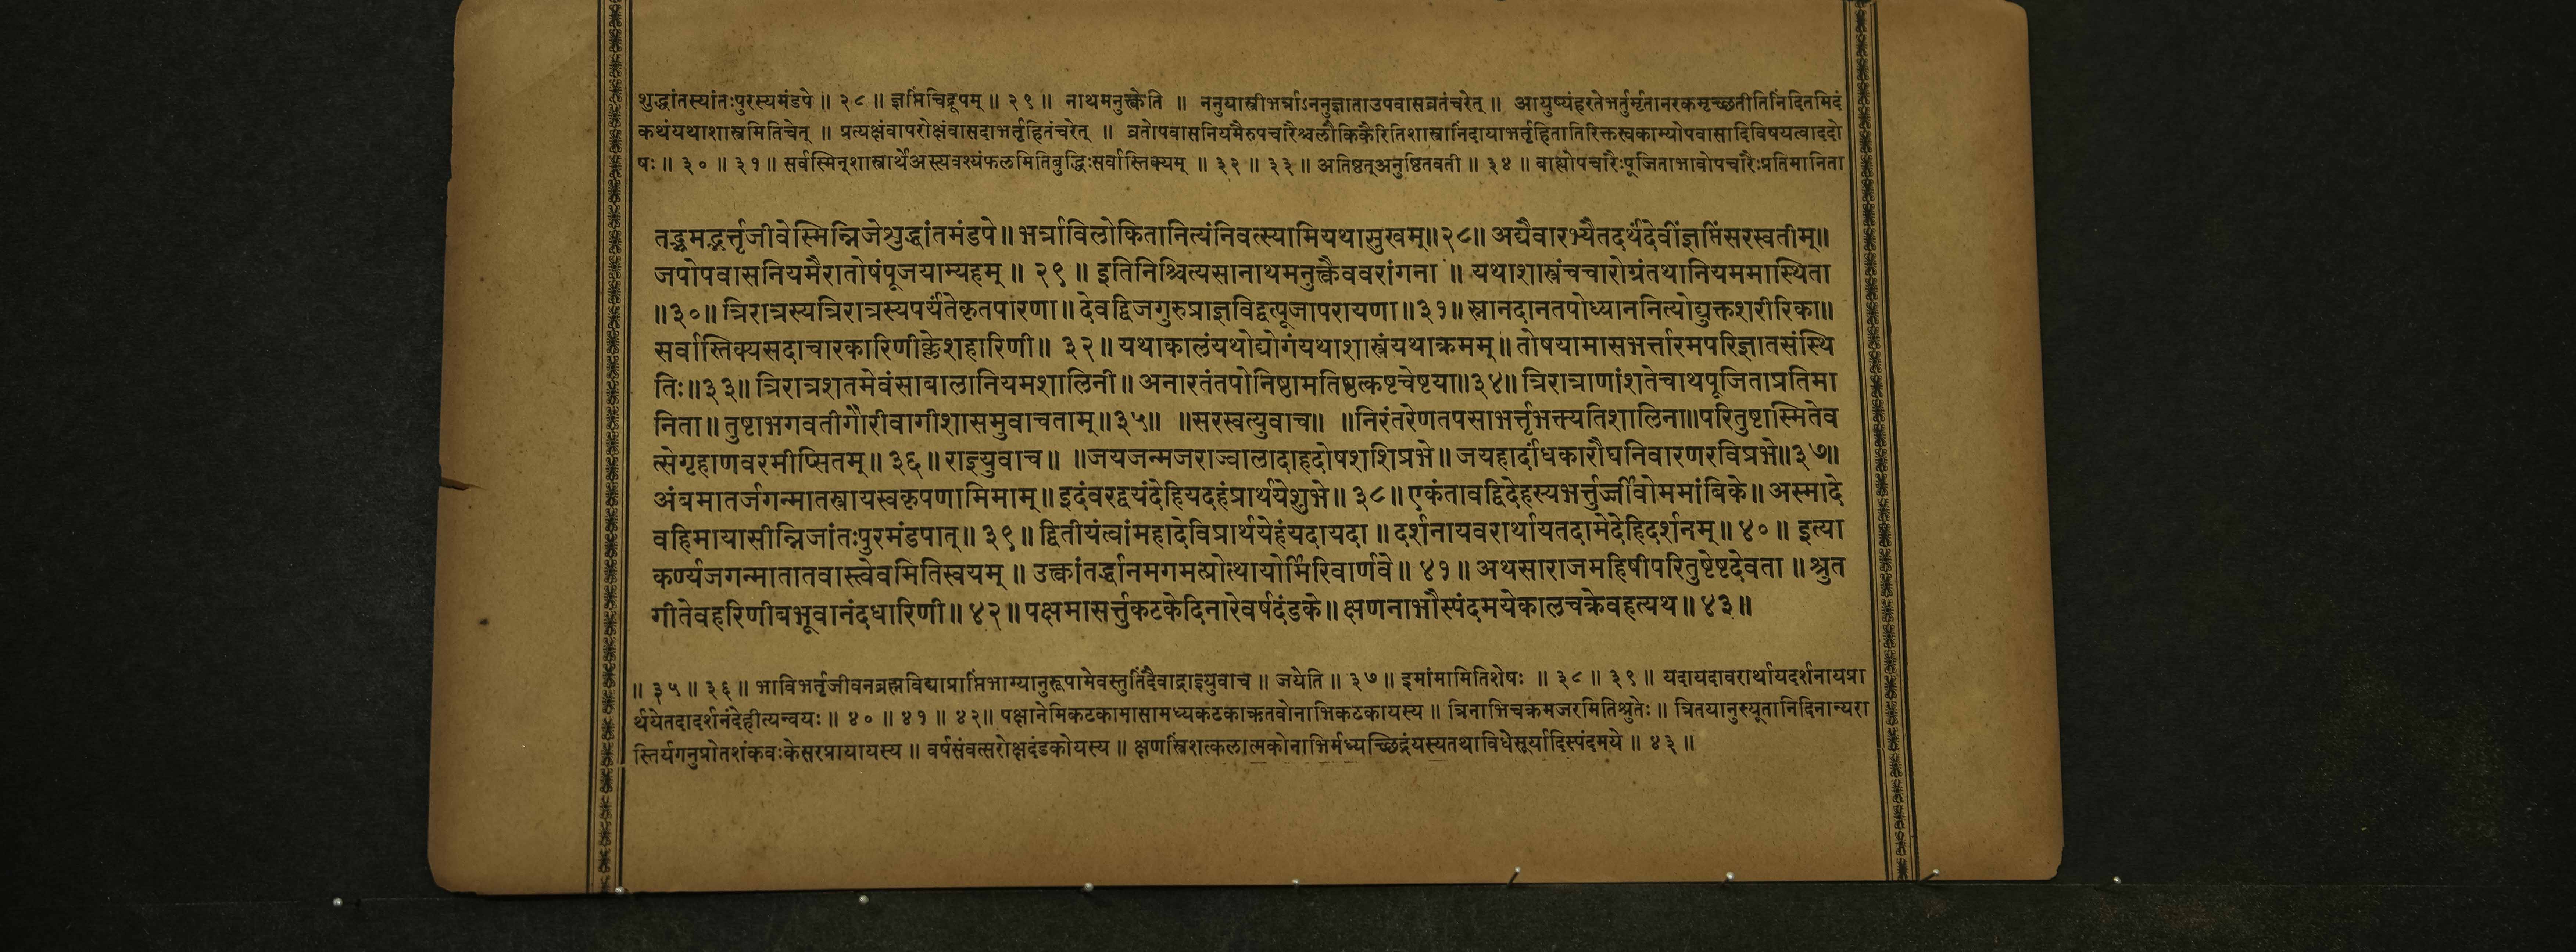 शुद्धांतस्यांतःपुरस्यमंडपे ॥ २८ ॥ ज्ञप्तिंचिद्रूपम् ॥ २९ ॥ नाथमनुक्त्वेति ॥ ननुयास्त्रीभर्त्राऽननुज्ञाताउपवासव्रतंचरेत् ॥ आयुष्यंहरतेभर्तुर्मृतानरकमृच्छतीतिनिंदितमिदं
कथंयथाशास्त्रमितिचेत् ॥ प्रत्यक्षंवापरोक्षंवासदाभर्तृहितंचरेत् ॥ व्रतोपवासनियमैरुपचारैश्चलौकिकैरितिशास्त्रान्निंदायाभर्तृहितातिरिक्तस्वकाम्योपवासादिविषयत्वाददो
षः ॥ ३० ॥ ३१ ॥ सर्वस्मिन्शास्त्रार्थेअस्त्यवश्यंफलमितिबुद्धिःसर्वास्तिक्यम् ॥ ३२ ॥ ३३ ॥ अतिष्ठत्अनुष्ठितवती ॥ ३४ ॥ बाह्योपचारैःपूजिताभावोपचारैःप्रतिमानिता
तद्भ्रमद्भर्त्तृजीवेस्मिन्निजेशुद्धांतमंडपे॥ भर्त्राविलोकितानित्यंनिवत्स्यामियथासुखम्॥२८॥ अद्यैवारभ्यैतदर्थंदेवींज्ञप्तिंसरस्वतीम्॥
जपोपवासनियमैरातोषंपूजयाम्यहम् ॥ २९ ॥ इतिनिश्चित्यसानाथमनुक्त्वैववरांगना ॥ यथाशास्त्रंचचारोग्रंतथानियममास्थिता
॥३०॥ त्रिरात्रस्यत्रिरात्रस्यपर्यंतेकृतपारणा॥ देवद्विजगुरुप्राज्ञविद्वत्पूजापरायणा॥३१॥ स्नानदानतपोध्याननित्योद्युक्तशरीरिका॥
सर्वास्तिक्यसदाचारकारिणीक्लेशहारिणी॥ ३२॥ यथाकालंयथोद्योगंयथाशास्त्रंयथाक्रमम्॥ तोषयामासभर्त्तारमपरिज्ञातसंस्थि
तिः॥३३॥ त्रिरात्रशतमेवंसाबालानियमशालिनी॥ अनारतंतपोनिष्ठामतिष्ठत्कष्टचेष्टया॥३४॥ त्रिरात्राणांशतेचाथपूजिताप्रतिमा
निता॥ तुष्टाभगवतीगौरीवागीशासमुवाचताम्॥३५॥ ॥सरस्वत्युवाच॥ ॥निरंतरेणतपसाभर्त्तृभक्त्यतिशालिना॥परितुष्टास्मितेव
त्सेगृहाणवरमीप्सितम्॥ ३६॥ राज्ञ्युवाच॥ ॥जयजन्मजराज्वालादाहदोषशशिप्रभे॥ जयहार्दांधकारौघनिवारणरविप्रभे॥३७॥
अंबमातर्जगन्मातस्त्रायस्वकृपणामिमाम्॥ इदंवरद्वयंदेहियदहंप्रार्थयेशुभे॥ ३८॥ एकंतावद्विदेहस्यभर्त्तुर्ज्जीवोममांबिके॥ अस्मादे
वहिमायासीन्निजांतःपुरमंडपात्॥ ३९॥ द्वितीयंत्वांमहादेविप्रार्थयेहंयदायदा ॥ दर्शनायवरार्थायतदामेदेहिदर्शनम्॥ ४०॥ इत्या
कर्ण्यजगन्मातातवास्त्वेवमितिस्वयम् ॥ उक्त्वांतर्द्धानमगमत्प्रोत्थायोर्मिरिवार्णवे॥ ४१॥ अथसाराजमहिषीपरितुष्टेष्टदेवता ॥ श्रुत
गीतेवहरिणीबभूवानंदधारिणी॥ ४२॥ पक्षमासर्त्तुकटकेदिनारेवर्षदंडके॥ क्षणनाभौस्पंदमयेकालचक्रेवहत्यथ॥ ४३॥
॥ ३५ ॥ ३६ ॥ भाविभर्तृजीवनब्रह्मविद्याप्राप्तिभाग्यानुरूपामेवस्तुतिंदैवाद्राज्ञ्युवाच ॥ जयेति ॥ ३७ ॥ इमांमामितिशेषः ॥ ३८ ॥ ३९ ॥ यदायदावरार्थायदर्शनायप्रा
र्थयेतदादर्शनंदेहीत्यन्वयः ॥ ४० ॥ ४१ ॥ ४२॥ पक्षानेमिकटकामासामध्यकटकाऋतवोनाभिकटकायस्य ॥ त्रिनाभिचक्रमजरमितिश्रुतेः ॥ त्रितयानुस्यूतानिदिनान्यरा
स्तिर्यगनुप्रोतशंकवःकेसरप्रायायस्य ॥ वर्षसंवत्सरोक्षदंडकोयस्य ॥ क्षणस्त्रिंशत्कलात्मकोनाभिर्मध्यच्छिद्रंयस्यतथाविधेसूर्यादिस्पंदमये ॥ ४३ ॥